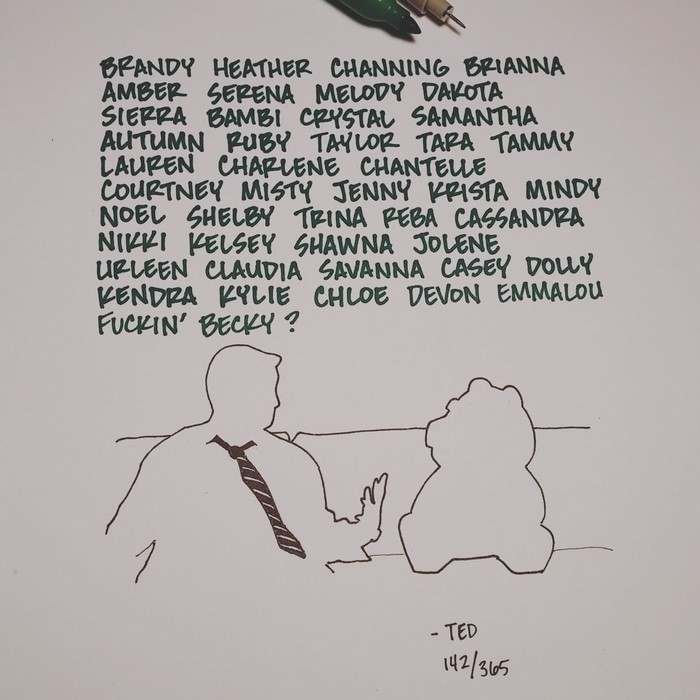 BRANDY HEATHER CHANNING BRIANNA
AMBER SERENA MELODY DAKOTA
SIERRA BAMBI CRYSTAL SAMANTHA
AUTUMN RUBY TAYLOR TARA TAMMY
LAUREN CHARLENE CHANTELLE
COURTNEY MISTY JENNY KRISTA MINDY
NOEL SHELBY TRINA REBA CASSANDRA
NIKKI KELSEY SHAWNA JOLENE
URLEEN CLAUDIA SAVANNA CASEY DOLLY
KENDRA KYLIE CHLOE DEVON EMMALOU
FUCKIN' BECKY?
- TED
142/365